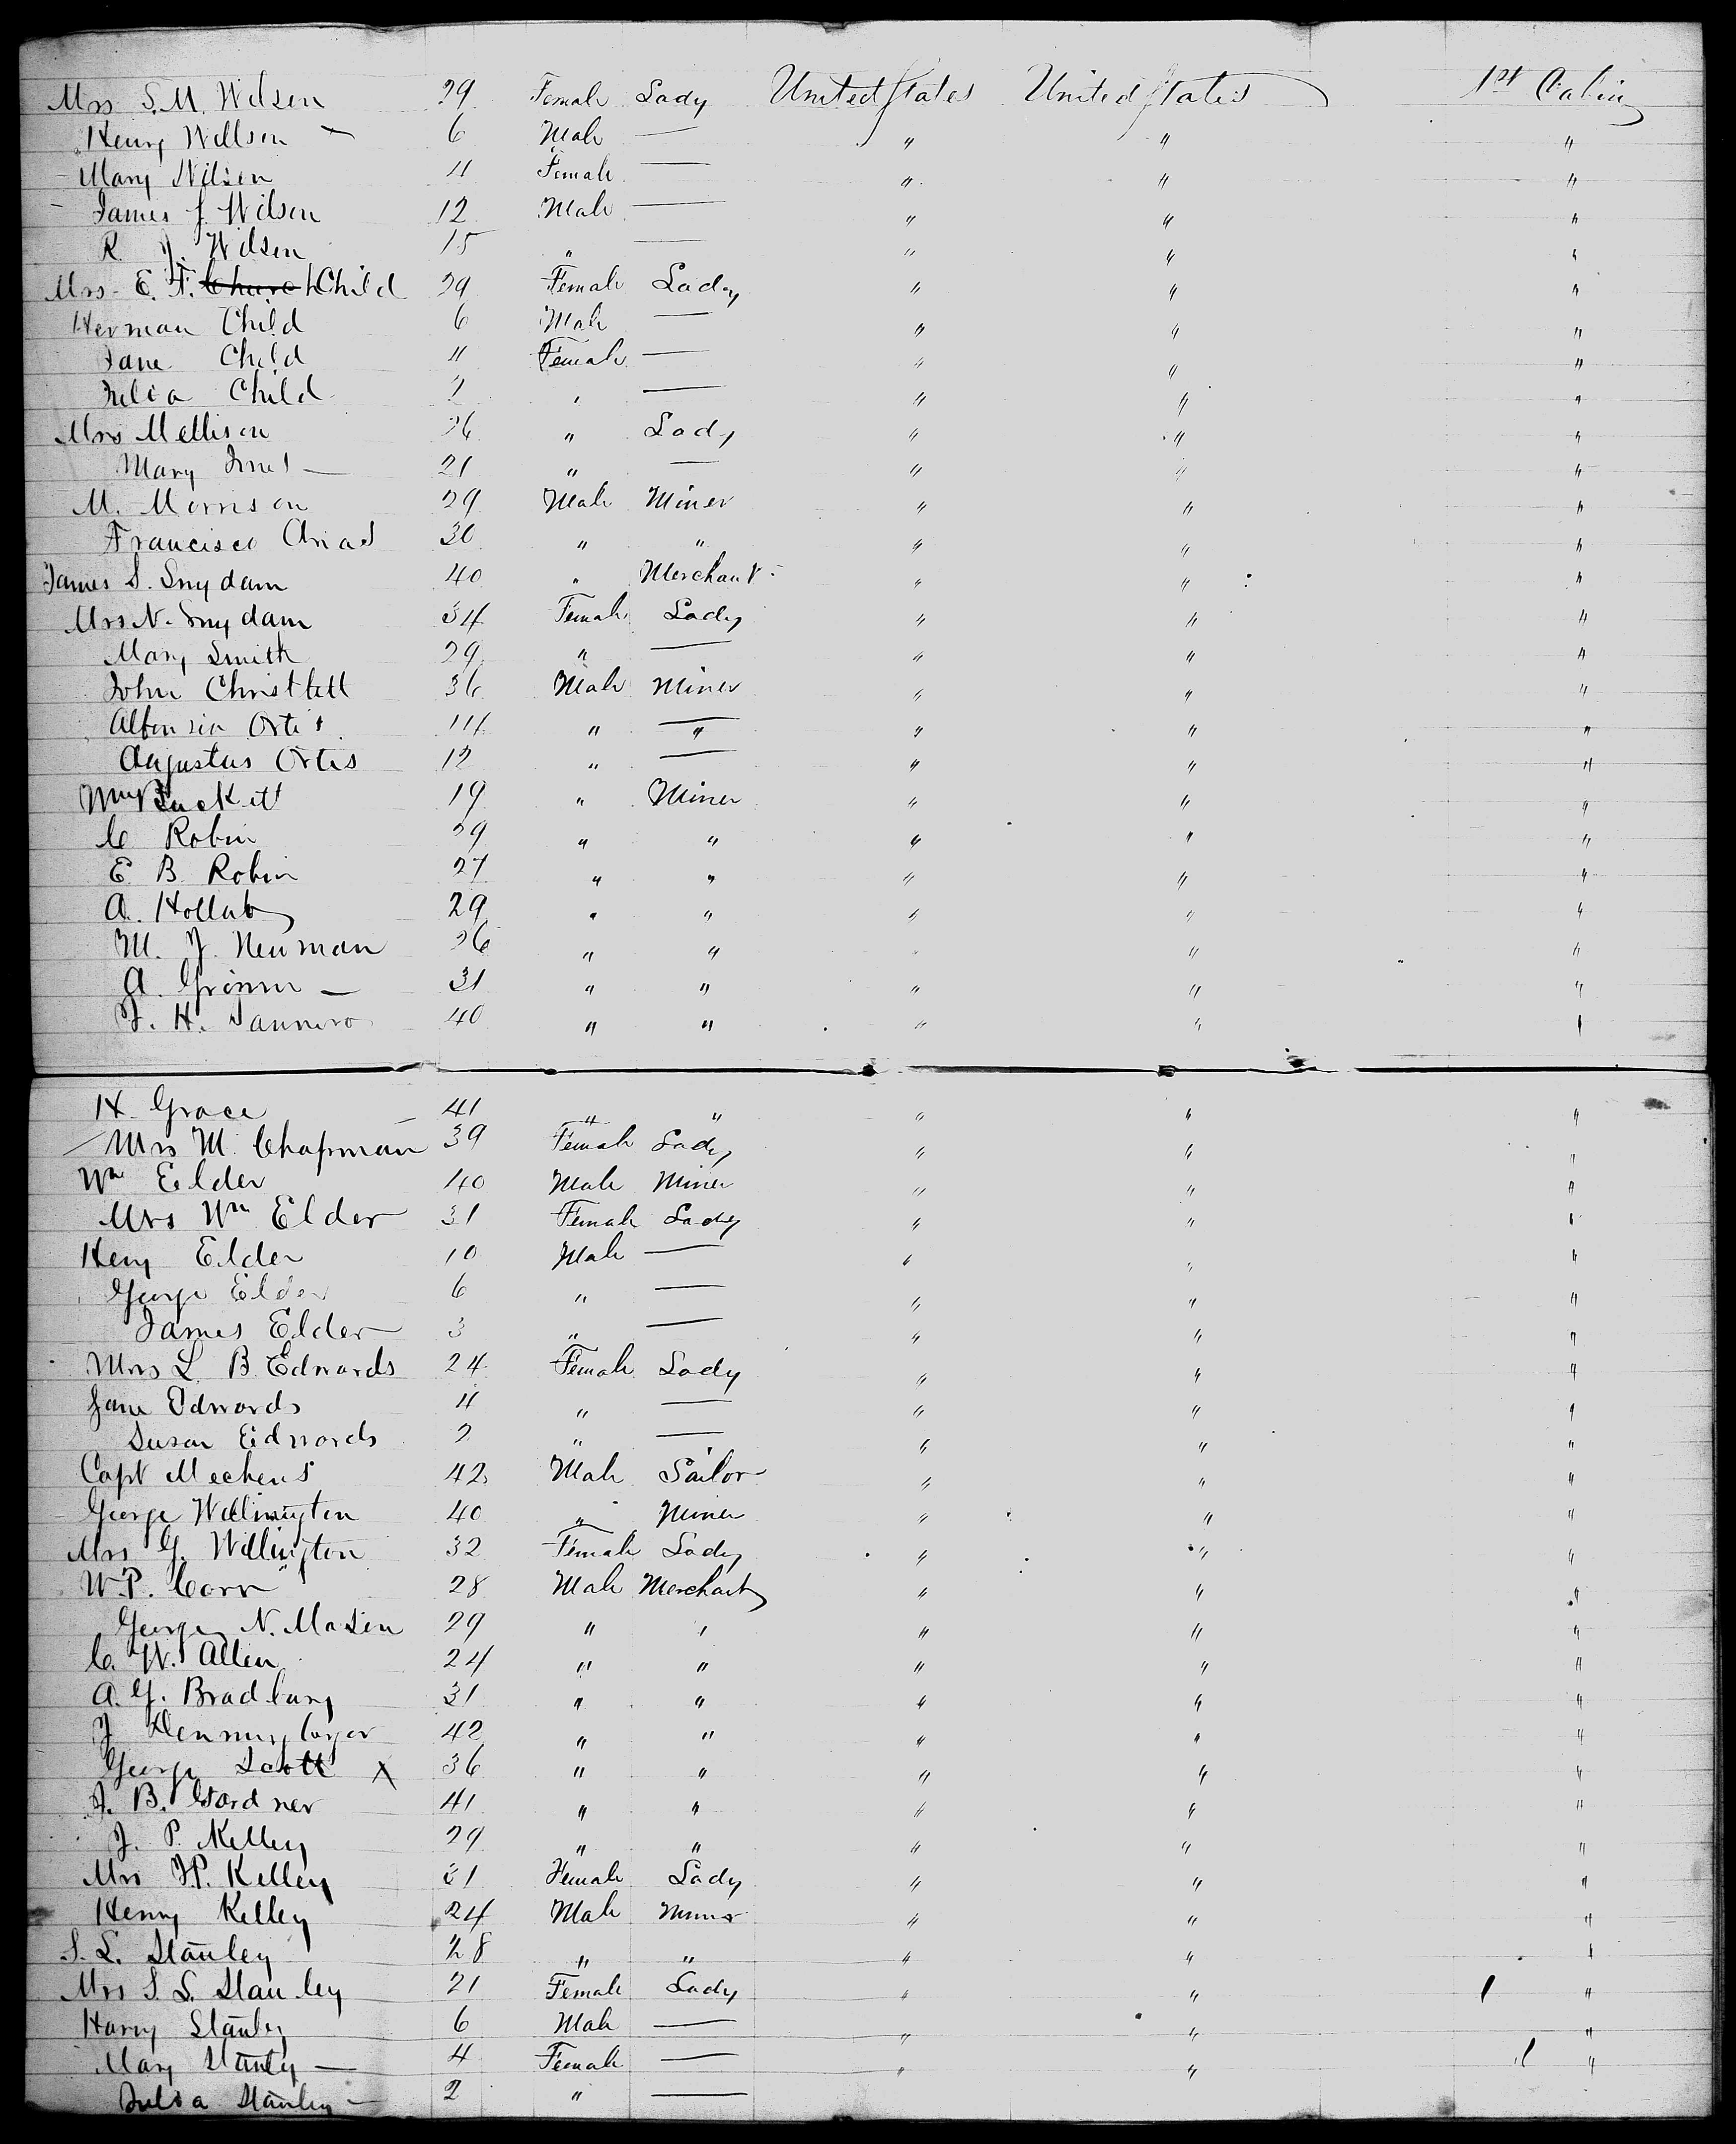 Mrs S. M. Wilson 29 Female Lady United States United States 1st Cabin
Henry Willson 6 Male — " " "
Mary Wilson 4 Female — " " "
James J. Wilson 12 Male — " " "
R. J. Wilson 15 " — " " "
Mrs E. F. Child 29 Female Lady " " "
Herman Child 6 Male — " " "
Jane Child 4 Female — " " "
Julia Child 2 " — " " "
Mrs Mellison 26 " Lady " " "
Mary 21 " — " " "
M. Morrison 29 Male Miner " " "
Francisco Arias 30 " " " " "
James S. Suydam 40 " Merchant " " "
Mrs N. Suydam 34 Female Lady " " "
Mary Smith 29 " — " " "
John 36 Male Miner " " "
Ortis 14 " — " " " "
Augustus Ortis 12 " — " " "
19 " Miner " " "
C Robin 29 " " " " "
E. B. Robin 27 " " " " "
A. 29 " " " " "
M. J. Newman 26 " " " " "
A. 31 " " " " "
J. H. 40 " " " " "
H. Grace 41 " " " " "
Mrs M. Chapman 39 Female Lady " " "
Wm Elder 40 Male Miner " " "
Mrs Wm Elder 31 Female Lady " " "
Heny Elder 10 Male — " " "
George Elder 6 " — " " "
James Elder 3 " — " " "
Mrs L. B. Edwards 24 Female Lady " " "
Jane Edwards 4 " — " " "
Susan Edwards 2 " — " " "
Capt 42 Male Sailor " " "
George Wellington 40 " Miner " " "
Mrs G. Willington 32 Female Lady " " "
W. P. Corr 28 Male Merchant " " "
George N. Mason 29 " " " " "
C. W. Allen 24 " " " " "
A. G. Bradbury 31 " " " " "
J 42 " " " " "
George Scott X 36 " " " " "
J. B. Gardner 41 " " " " "
J. P. Kelley 29 " " " " "
Mrs J. P. Kelley 31 Female Lady " " "
Henry Kelley 24 Male Miner " " "
S. L. Stanley 28 " " " " "
Mrs S. L. Stanley 21 Female Lady " " "
Harry Stanley 6 Male — " " "
Mary Stanley 4 Female — " " "
Julia Stanley 2 " —